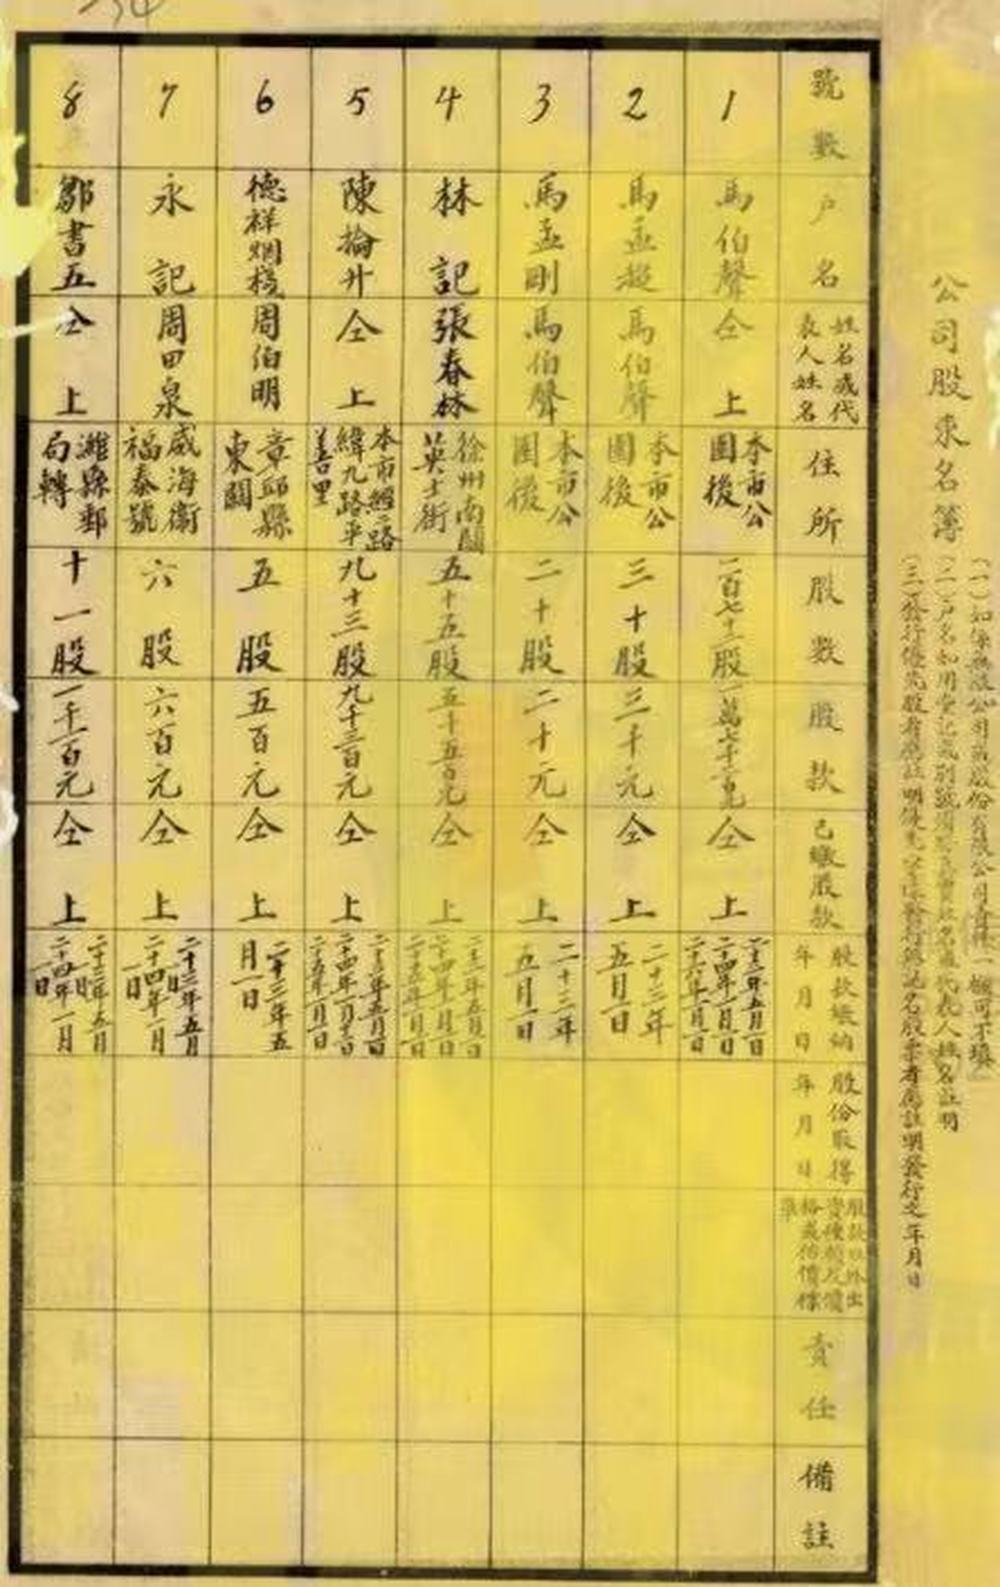 公司股東名簿
(一)如係無限公司或股份有限公司者此一欄可不填
(二)戶名如用堂記或別號須將真實姓名或代表人姓名註明
(三)發行優先股者應註明優先字樣發行無記名股票者應註明發行之年月日
號數
戶名
姓名或代表人姓名
住所
股數
股款
已繳股款
股款繳納年月日
股份取得年月日
責任
備註
1
馬伯聲
仝上
本市公園後
二百七十二股
仝上
二十三年五月一日
二十四年一月一日
二十六年一月一日
2
馬孟超
馬伯聲
本市公園後
三十股
三千元
仝上
二十三年五月一日
3
馬孟剛
馬伯聲
本市公園後
二十股
二千元
仝上
二十三年五月一日
4
林記
張春林
徐州南關英士街
五十五股
五千五百元
仝上
二十三年五月一日
二十四年一月一日
二十五年一月一日
5
陳掄升
仝上
本市經二路緯九路平善里
九十三股
九千三百元
仝上
二十三年五月一日
二十五年一月一日
6
德祥烟棧
周伯明
章邱縣東關
五股
五百元
仝上
二十三年五月一日
7
永記
周田泉
威海衞福泰號
六股
六百元
仝上
二十三年五月一日
二十四年一月一日
8
鄒書五
仝上
濰縣郵局轉
十一股
一千一百元
仝上
二十三年五月一日
二十四年一月一日